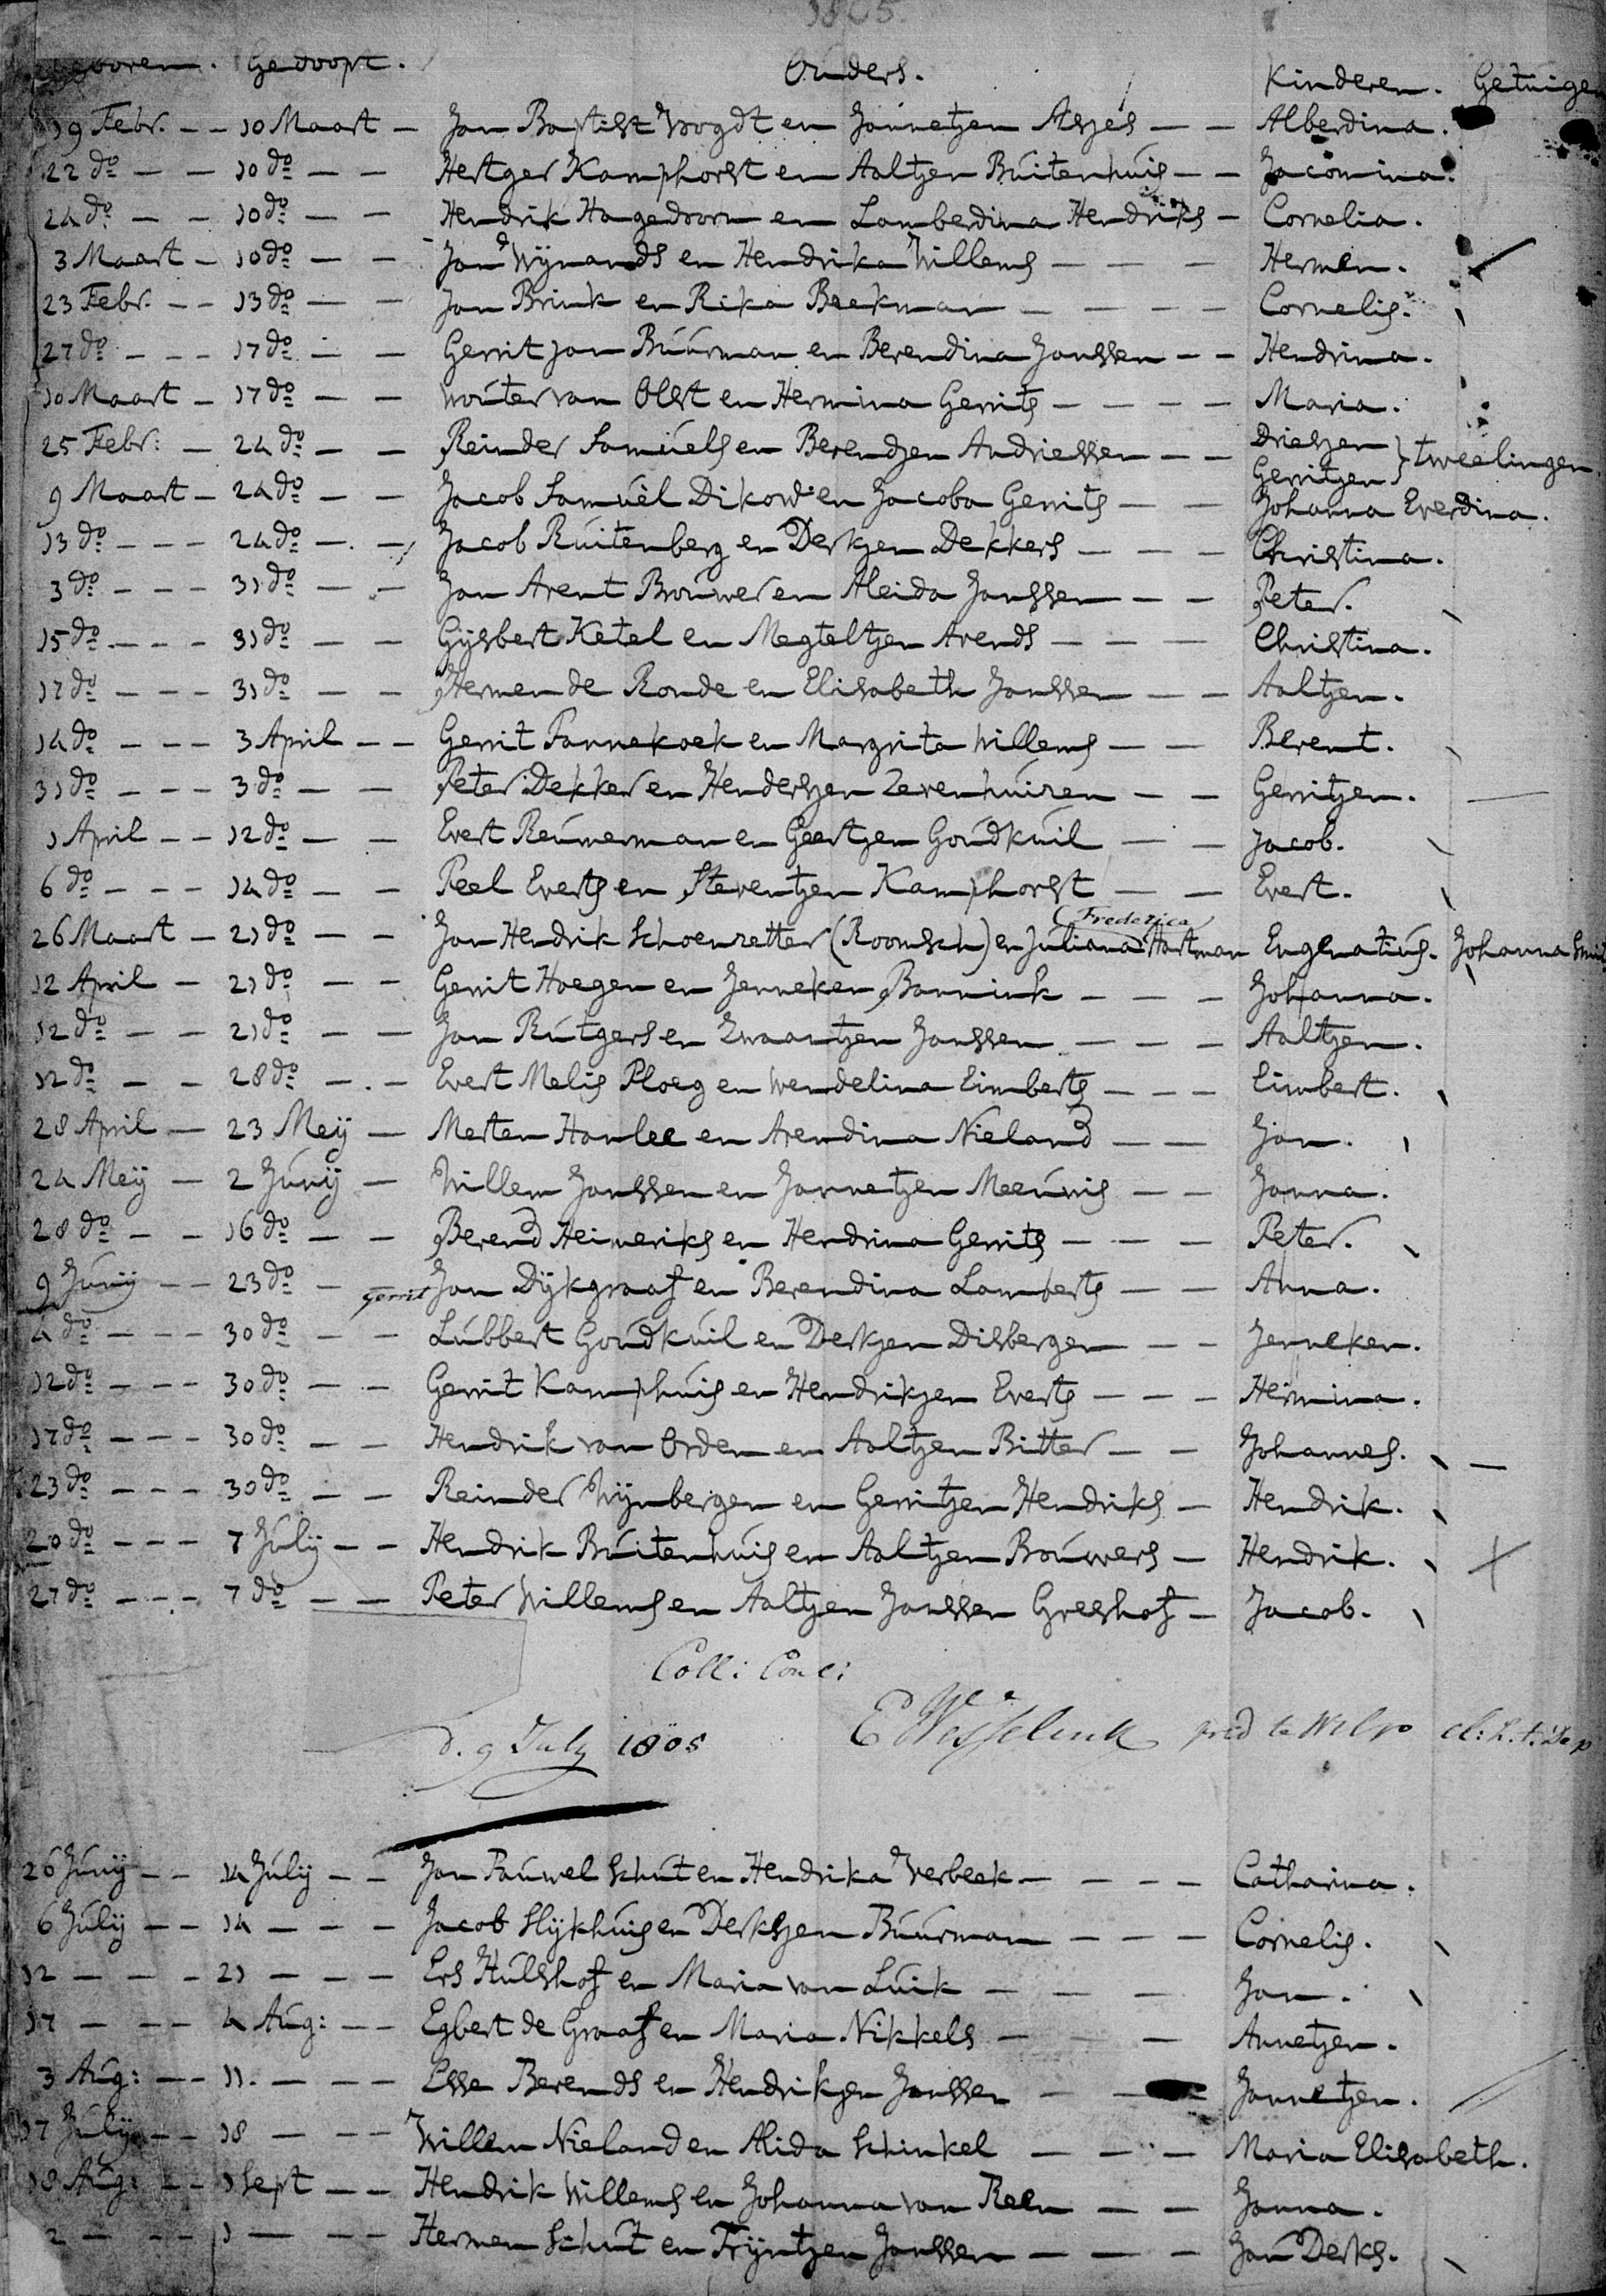 1805.
Geboren. Gedoopt. Ouders. Kinderen. Getuigen
19 Febr. -- 10 Maart - Jan Baptist Voogdt en Jannetjen Asjes -- Alberdina.
22 do -- 10 do -- Hertger Kamphorst en Aaltjen Buitenhuis -- Jacomina.
24 do -- 10 do -- Hendrik Hagedoorn en Lamberdina Hendriks - Cornelia.
3 Maart - 10 do -- Jan Wijnands en Hendrika Willems --- Hermen.
23 Febr. -- 13 do -- Jan Brink en Rika Beekman ---- Cornelis.
27 do --- 17 do -- Gerrit Jan Buurman en Berendina Janssen -- Hendrina.
10 Maart - 17 do -- Wouter van Olst en Hermina Gerrits ---- Maria.
25 Febr: - 24 do -- Reinder Samuels en Berendjen Andriessen -- Driesjen } tweelingen.
Gerritjen
9 Maart - 24 do -- Jacob Samuël Dikow en Jacoba Gerrits -- Johanna Everdina.
13 do --- 24 do -- Jacob Ruitenberg en Derkjen Dekkers --- Christina.
3 do --- 31 do -- Jan Arent Brouwer en Aleida Janssen -- Peter.
15 do --- 31 do -- Gijsbert Ketel en Megteltjen Arends --- Christina.
17 do --- 31 do -- Hermen de Ronde en Elisabeth Janssen -- Aaltjen.
14 do --- 3 April -- Gerrit Pannekoek en Margrita Willems -- Berent.
31 do --- 3 do -- Peter Dekker en Hendersjen Zevenhuizen -- Gerritjen.
1 April -- 12 do -- Evert Reumerman en Geertjen Goudkuil -- Jacob.
6 do --- 14 do -- Peel Everts en Steventjen Kamphorst -- Evert.
26 Maart - 21 do -- Jan Hendrik Schoenzetter (Roomsch) en Juliana (Frederica) Hartman Engenatius. Johanna Smit
12 April - 21 do -- Gerrit Hoegen en Jenneken Bannink --- Johanna.
12 do -- 21 do -- Jan Rutgers en Zwaantjen Janssen --- Aaltjen.
12 do -- 28 do -- Evert Melis Ploeg en Wendelina Eimberts --- Eimbert.
28 April - 23 Meij - Merten Hanlee en Arendina Nieland -- Jan.
24 Meij - 2 Junij - Willem Janssen en Jannetjen Meeuwis -- Janna.
28 do -- 16 do -- Berend Heimeriks en Hendrina Gerrits --- Peter.
9 Junij -- 23 do - Gerrit Jan Dijkgraaf en Berendina Lamberts -- Anna.
4 do --- 30 do -- Lubbert Goudkuil en Derkjen Disbergen -- Jenneken.
12 do --- 30 do -- Gerrit Kamphuis en Hendrikjen Everts --- Hermina.
17 do --- 30 do -- Hendrik van Orden en Aaltjen Bitter -- Johannes.
23 do --- 30 do -- Reinder Wijnbergen en Gerritjen Hendriks - Hendrik.
20 do --- 7 Julij -- Hendrik Buitenhuis en Aaltjen Brouwers - Hendrik.
27 do --- 7 do -- Peter Willems en Aaltjen Janssen Greshof - Jacob.
Coll: Conc:
d. 9 July 1805 E Wesselink pred te Wilp
26 Junij -- 14 Julij -- Jan Pauwel Schut en Hendrika Verbeek ---- Catharina.
6 Julij -- 14 --- Jacob Slijkhuis en Derksjen Buurman --- Cornelis.
12 ---- 21 --- Ers Hulshof en Maria van Luik --- Jan.
17 --- 4 Aug: -- Egbert de Graaf en Maria Nikkels --- Annetjen.
3 Aug: -- 11. --- Esse Berends en Hendrikjen Janssen -- Jannetjen.
17 Julij -- 18 --- Willem Nieland en Alida Schinkel --- Maria Elisabeth.
18 Aug: -- 1 Sept -- Hendrik Willems en Johanna van Reen -- Janna.
2 --- 1 --- Hermen Schut en Trijntjen Janssen --- Jan Derks.